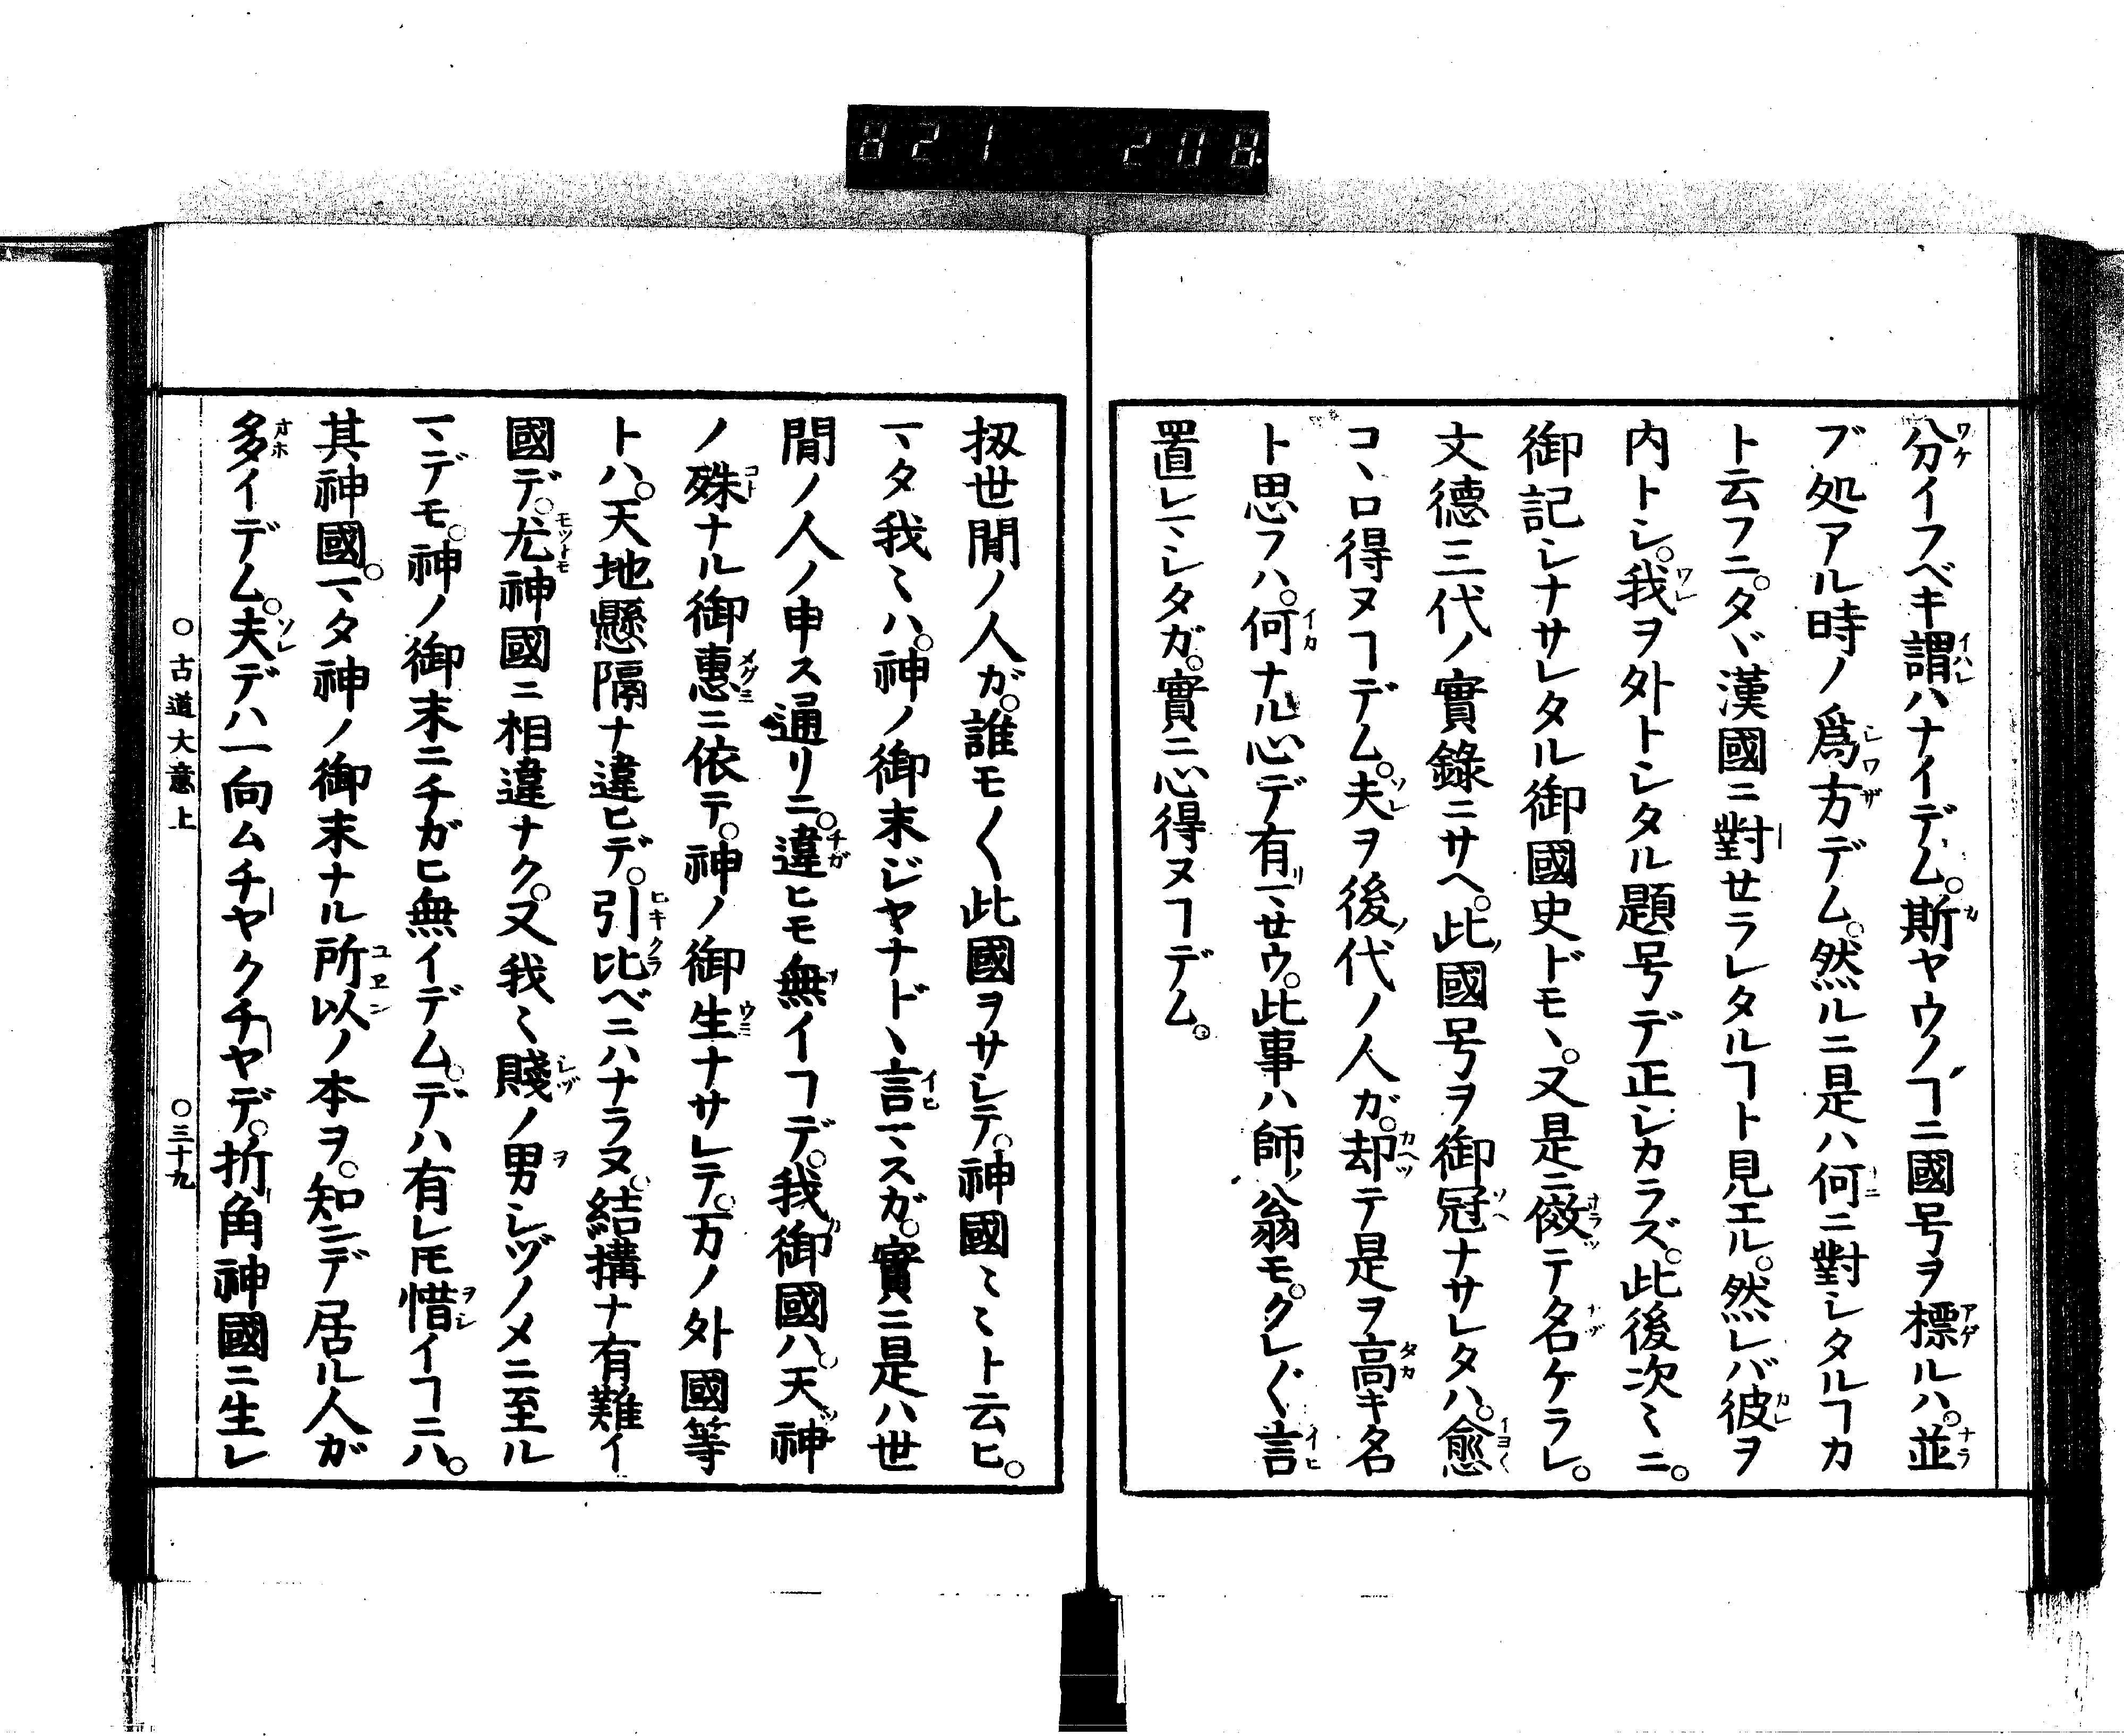 821 208
分イフベキ謂ハナイデム。斯ヤウノヿニ國号ヲ標ルハ。並
ブ処アル時ノ爲方デム。然ルニ是ハ何ニ對シタルヿカ
ト云フニ。タヾ漢國ニ對セラレタルヿト見エル。然レバ彼ヲ
内トシ。我ヲ外トシタル題号デ正シカラズ。此後次〻ニ。
御記シナサレタル御國史ドモヽ。又是ニ傚テ名ケラレ。
文德三代ノ實錄ニサヘ。此國号ヲ御冠ナサレタハ。愈
コヽロ得ヌヿデム。夫ヲ後代ノ人ガ。却テ是ヲ高キ名
ト思フハ。何ナル心デ有マセウ。此事ハ師ノ翁モ。クレ〴〵言
置レマシタガ。實ニ心得ヌヿデム。
扨世間ノ人ガ。誰モ〱此國ヲサシテ。神國〻〻ト云ヒ。
マタ我〻ハ。神ノ御末ジヤナドヽ言マスガ。實ニ是ハ世
間ノ人ノ申ス通リニ。違ヒモ無イヿデ。我御國ハ。天神
ノ殊ナル御惠ニ依テ。神ノ御生ナサレテ。万ノ外國等
トハ。天地懸隔ナ違ヒデ。引比ベニハナラヌ。結構ナ有難イ
國デ。尤神國ニ相違ナク。又我〻賤ノ男シヅノメニ至ル
マデモ。神ノ御末ニチガヒ無イデム。デハ有レ𪜈惜イヿニハ。
其神國。マタ神ノ御末ナル所以ノ本ヲ。知ンデ居ル人ガ
多イデム。夫デハ一向ムチヤクチヤデ。折角神國ニ生レ
○古道大意上 ○三十九